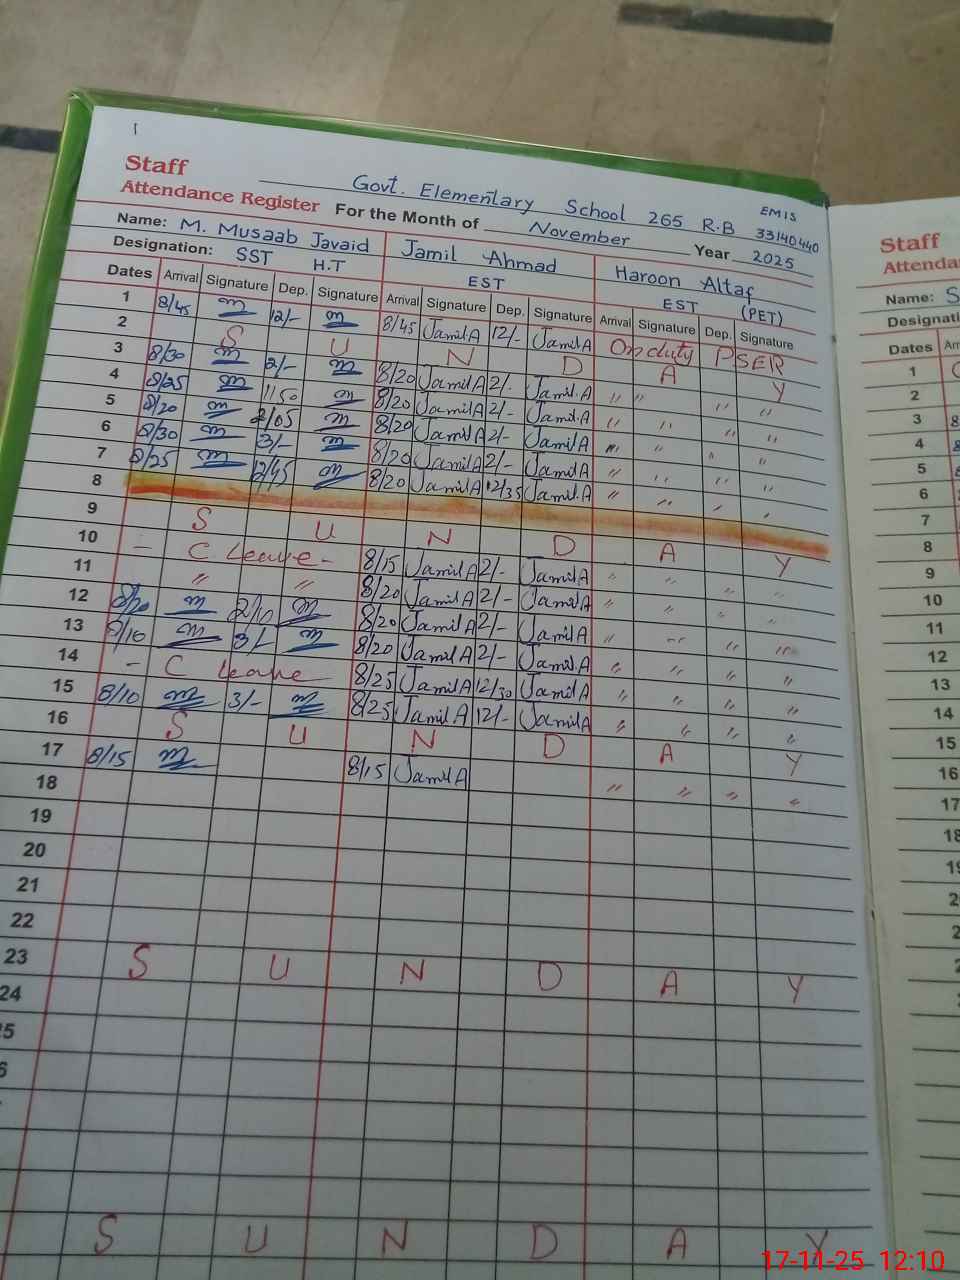 Staff
Attendance Register
Govt. Elementary School 265 R.B EMIS 33140440
For the Month of November Year 2025
Name: M. Musaab Javaid Jamil Ahmad Haroon Altaf
Designation: SST H.T EST EST (PET)
Dates Arrival Signature Dep. Signature Arrival Signature Dep. Signature Arrival Signature Dep. Signature
1 8/45 12/- 8/45 Jamil A 12/- Jamil A On duty PSER
2 S U N D A Y
3 8/30 2/- 8/20 Jamil A 2/- Jamil.A " " " "
4 8/25 1/50 8/20 Jamil A 2/- Jamil.A " " " "
5 8/20 2/05 8/20 Jamil A 2/- Jamil A " " " "
6 8/30 3/- 8/20 Jamil A 2/- Jamil A " " " "
7 8/25 12/45 8/20 Jamil A 12/35 Jamil.A " " " "
8
9 S U N D A Y
10 - C Leave - 8/15 Jamil A 2/- Jamil A " " " "
11 " " 8/20 Jamil A 2/- Jamil A " " " "
12 8/20 2/10 8/20 Jamil A 2/- Jamil A " " " "
13 8/10 3/- 8/20 Jamil A 2/- Jamil.A " " " "
14 - C leave 8/25 Jamil A 12/30 Jamil A " " " "
15 8/10 3/- 8/25 Jamil A 12/- Jamil A " " " "
16 S U N D A Y
17 8/15 8/15 Jamil A " " " "
18
19
20
21
22
23 S U N D A Y
24
S U N D A Y
Staff
Attenda
Name: S
Designati
Dates Arr
1
2
3 8
4 8
5 8
6
7
8
9
10
11
12
13
14
15
16
17
18
17-11-25 12:10